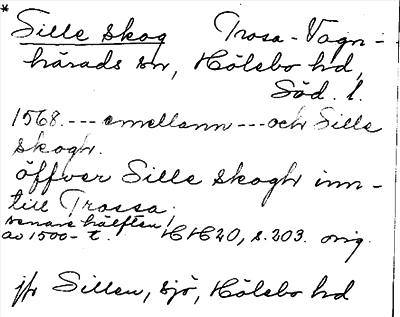 * Sille skog Trosa-Vagn-
härads sn, Hölebo hd,
Söd. l.
1568. --- emellann --- och Sille
skogh.
öffver Sille skogh inn-
till Trossa.
senare hälften
av 1500-t. HH 20, s. 203. orig.
jfr Sillen, sjö, Hölebo hd